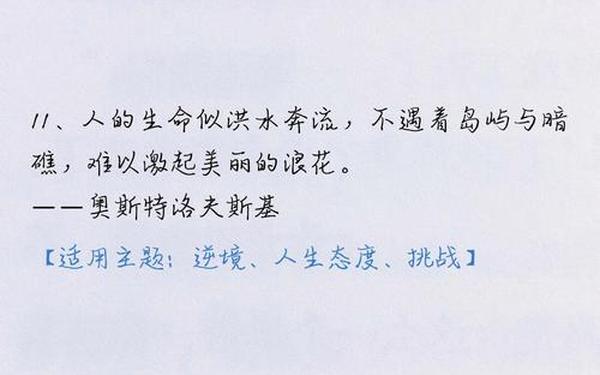 11、人的生命似洪水奔流，不遇着岛屿与暗
礁，难以激起美丽的浪花。
——奥斯特洛夫斯基
【适用主题：逆境、人生态度、挑战】